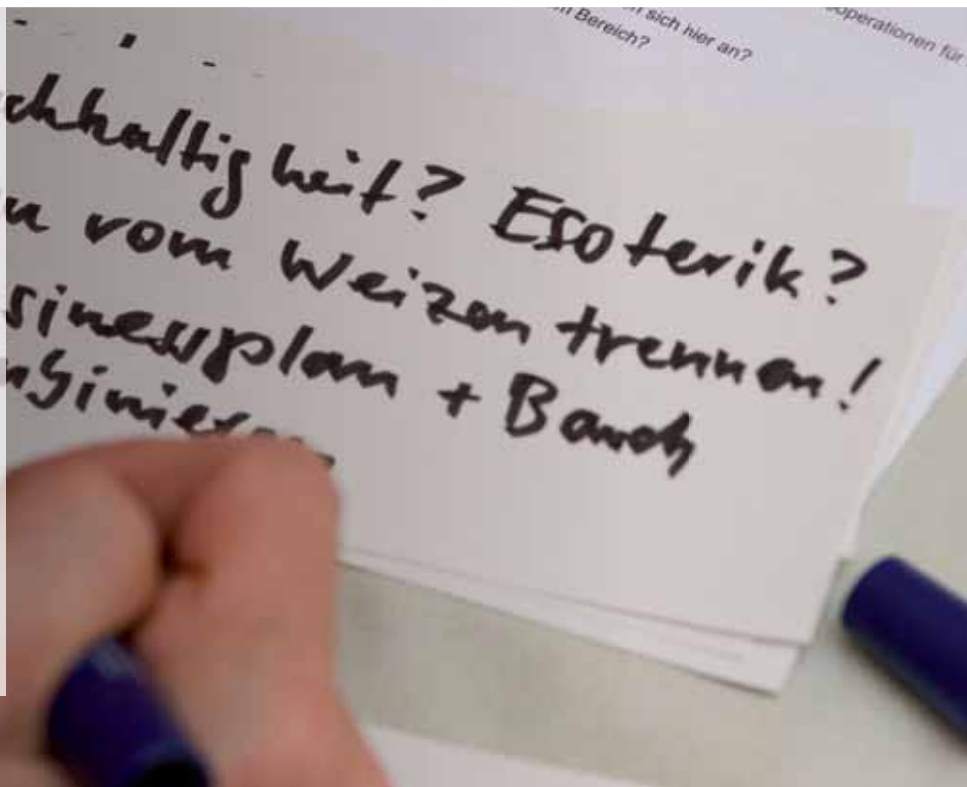 n sich hier an?
Bereich?
operationen für
chhaltigkeit? Esoterik?
n vom Weizen trennen!
sinessplan + Bauch
mbinieren